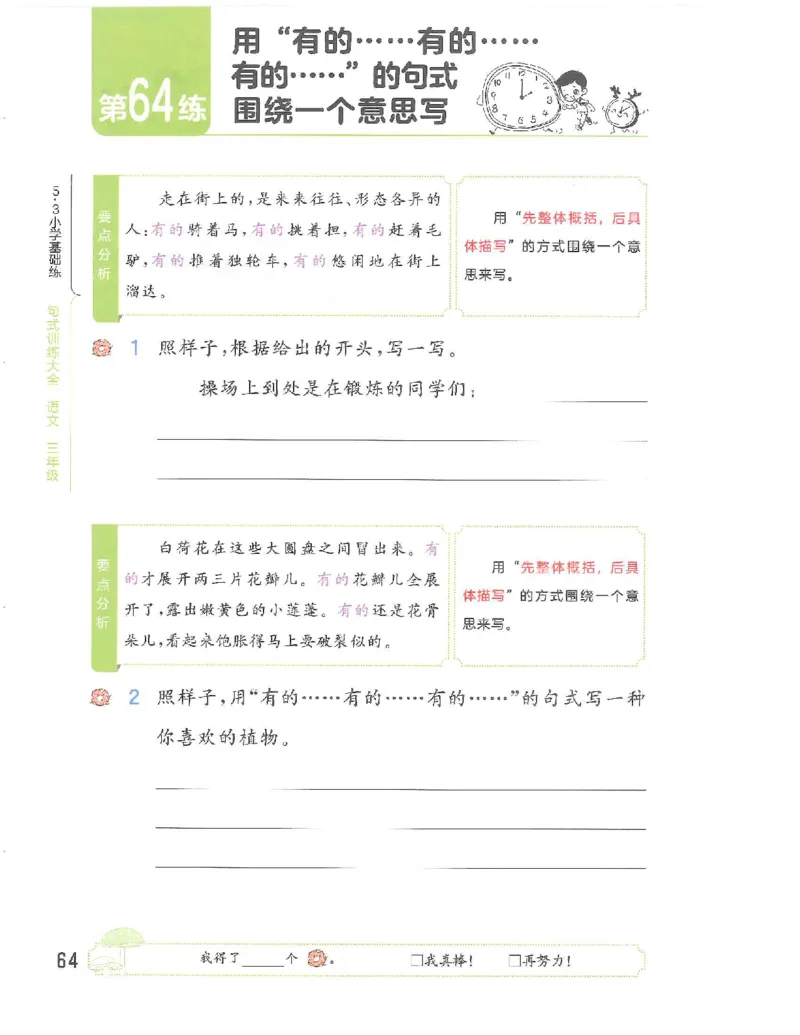 第64练
用“有的……有的……
有的……”的句式
围绕一个意思写
5·3小学基础练
句式训练大全 语文 三年级
要点分析
走在街上的,是来来往往、形态各异的
人:有的骑着马,有的挑着担,有的赶着毛
驴,有的推着独轮车,有的悠闲地在街上
溜达。
用“先整体概括,后具
体描写”的方式围绕一个意
思来写。
1 照样子,根据给出的开头,写一写。
操场上到处是在锻炼的同学们:
要点分析
白荷花在这些大圆盘之间冒出来。有
的才展开两三片花瓣儿。有的花瓣儿全展
开了,露出嫩黄色的小莲蓬。有的还是花骨
朵儿,看起来饱胀得马上要破裂似的。
用“先整体概括,后具
体描写”的方式围绕一个意
思来写。
2 照样子,用“有的……有的……有的……”的句式写一种
你喜欢的植物。
64
我得了____个。 □我真棒! □再努力!